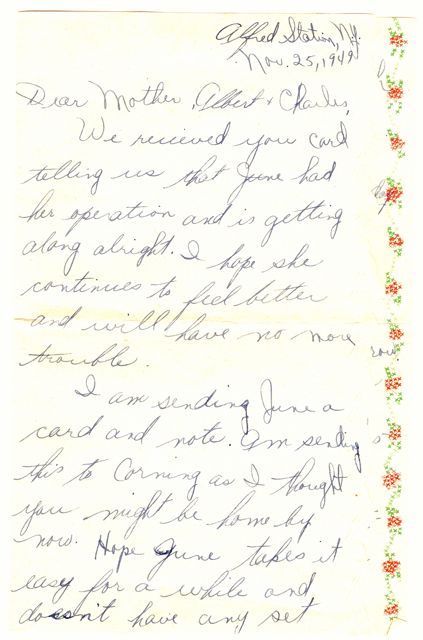 Alfred Station, N.Y.
Nov. 25, 1949
Dear Mother, Albert + Charles,
We received you card
telling us that June had
her operation and is getting
along alright. I hope she
continues to feel better
and will have no more
trouble.
I am sending June a
card and note. Am sending
this to Corning as I thought
you might be home by
now. Hope June takes it
easy for a while and
doesn't have any set